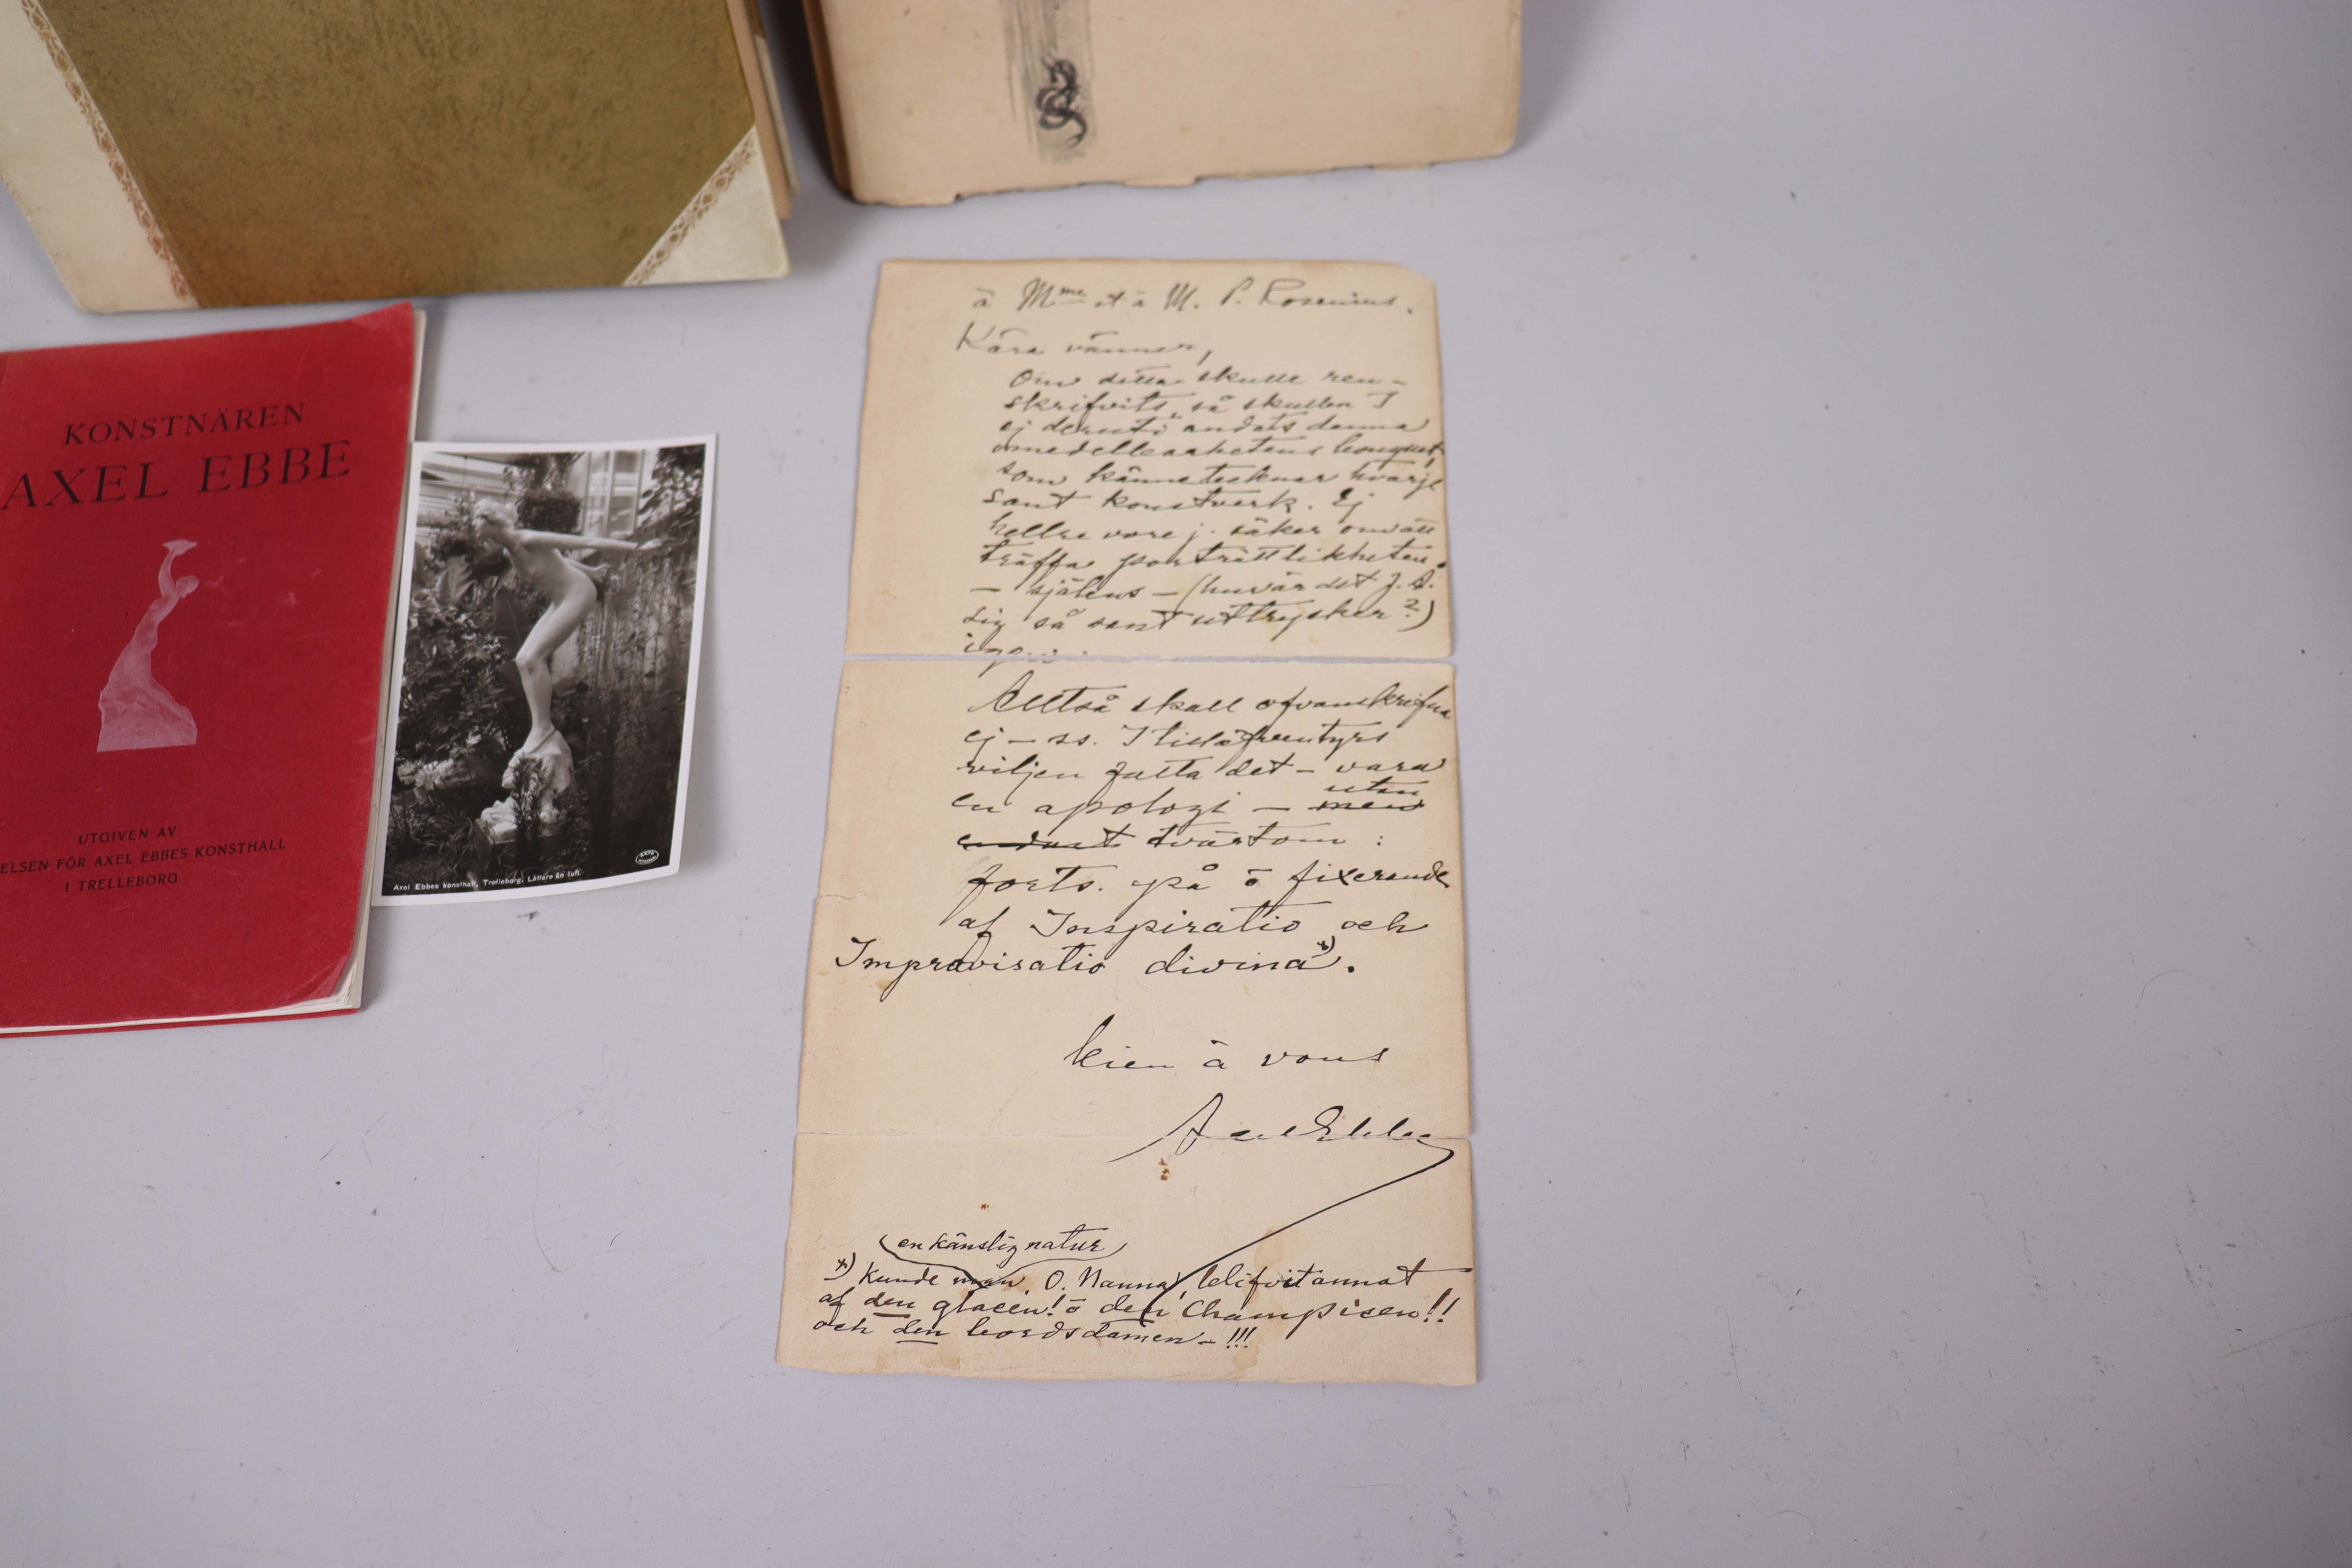 KONSTNÄREN
AXEL EBBE
UTGIVEN AV
ELSEN FÖR AXEL EBBES KONSTHALL
I TRELLEBORG
Axel Ebbes konsthall, Trelleborg. Lättare än luft.
à Mme et à M. P. Rosenius.
Kära vänner,
Om detta skulle ren-
skrifvits, så skullen I
ej deruti andats denna
omedelbarhetens bouquet,
som kännetecknar hvarje
sant konstverk. Ej
heller vore j. säker om att
träffa porträttlikheten
– själens – (hur är det J. A.
sig så sant uttrycker?)
igen.
Alltså skall ofvanskrifna
ej – ss. I tilläfventyrs
viljen fatta det – vara
en apologi – men utan
endast tvärtom :
forts. på o fixerande
af Inspiratio och
Improvisatio divina *).
bien à vous
Axel Ebbe
en känslig natur
*) Kunde man, O. Nanna, blifvit annat
af den glacen! o den Champisen!!
och den bordsdamen – !!!